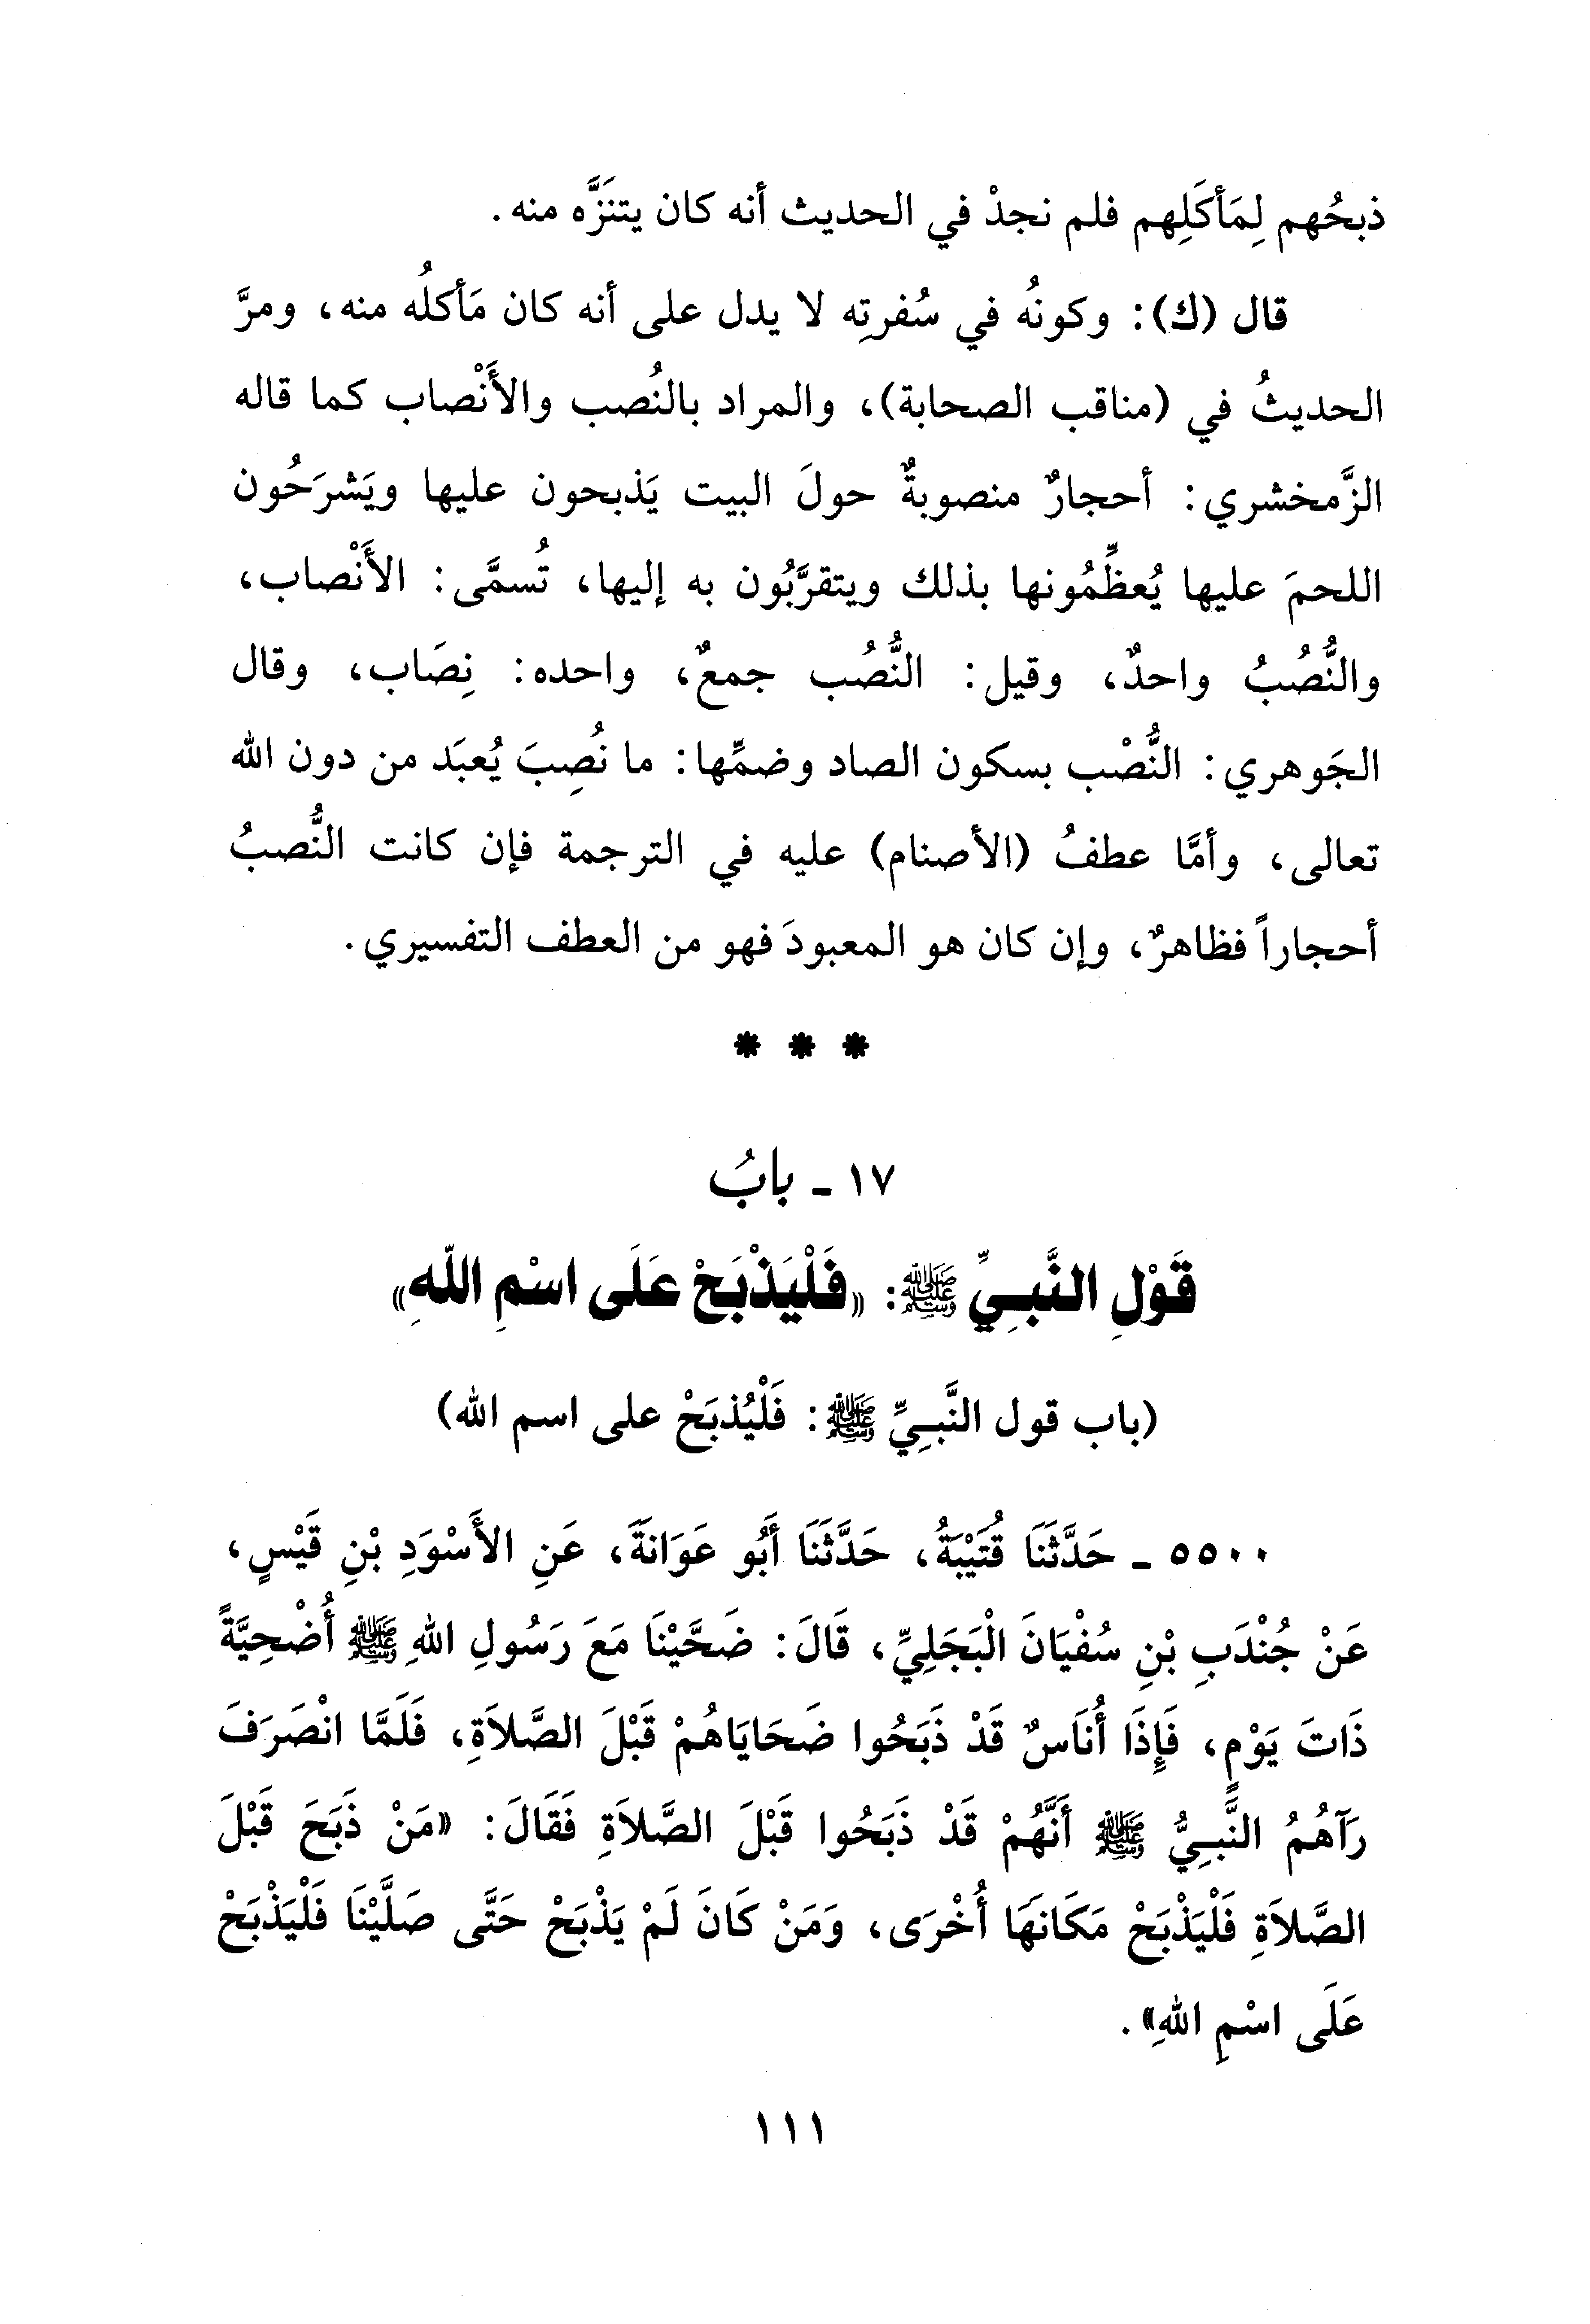 ذبحُهم لِمَأكَلِهم فلم نجدْ في الحديث أنه كان يتنَزَّه منه.
قال (ك): وكونُه في سُفرتِه لا يدل على أنه كان مَأكلُه منه، ومرَّ
الحديثُ في (مناقب الصحابة)، والمراد بالنُصب والأَنْصاب كما قاله
الزَّمخشري: أحجارٌ منصوبةٌ حولَ البيت يَذبحون عليها ويَشرَحُون
اللحمَ عليها يُعظِّمُونها بذلك ويتقرَّبُون به إليها، تُسمَّى: الأَنْصاب،
والنُّصُبُ واحدٌ، وقيل: النُّصُب جمعٌ، واحده: نِصَاب، وقال
الجَوهري: النُّصْب بسكون الصاد وضمِّها: ما نُصِبَ يُعبَد من دون الله
تعالى، وأمَّا عطفُ (الأصنام) عليه في الترجمة فإن كانت النُّصبُ
أحجاراً فظاهرٌ، وإن كان هو المعبودَ فهو من العطف التفسيري.
* * *
١٧ - بابُ
قَوْلِ النَّبِيِّ ﷺ: «فَلْيَذْبَحْ عَلَى اسْمِ اللهِ»
(باب قول النَّبِيِّ ﷺ: فَلْيُذبَحْ على اسم الله)
٥٥٠٠ - حَدَّثَنَا قُتَيْبَةُ، حَدَّثَنَا أَبُو عَوَانَةَ، عَنِ الأَسْوَدِ بْنِ قَيْسٍ،
عَنْ جُنْدَبِ بْنِ سُفْيَانَ الْبَجَلِيِّ، قَالَ: ضَحَّيْنَا مَعَ رَسُولِ اللهِ ﷺ أُضْحِيَّةً
ذَاتَ يَوْمٍ، فَإِذَا أُنَاسٌ قَدْ ذَبَحُوا ضَحَايَاهُمْ قَبْلَ الصَّلاَةِ، فَلَمَّا انْصَرَفَ
رَآهُمُ النَّبِيُّ ﷺ أَنَّهُمْ قَدْ ذَبَحُوا قَبْلَ الصَّلاَةِ فَقَالَ: «مَنْ ذَبَحَ قَبْلَ
الصَّلاَةِ فَلْيَذْبَحْ مَكَانَهَا أُخْرَى، وَمَنْ كَانَ لَمْ يَذْبَحْ حَتَّى صَلَّيْنَا فَلْيَذْبَحْ
عَلَى اسْمِ اللهِ».
١١١